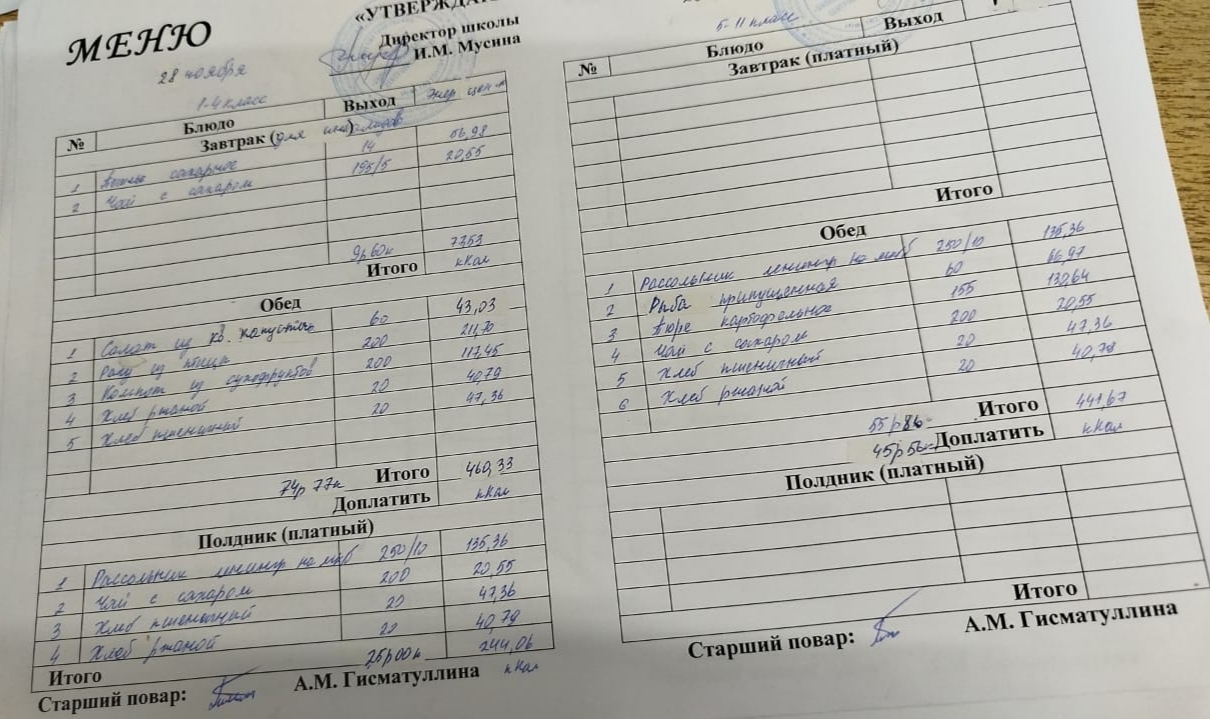 МЕНЮ
«УТВЕРЖДАЮ
Директор школы
И.М. Мусина
28 ноября
1-4 класс
№ Блюдо Выход
Завтрак (для
14 56,98
1 сахарное 195/5 20,55
2 Чай с сахаром
9р 60к 77,53
Итого кКал
Обед
1 Салат из кв. капусты 60 43,03
2 Рагу из птицы 200 211,70
3 Компот из сухофруктов 200 117,45
4 Хлеб ржаной 20 40,79
5 Хлеб пшеничный 20 47,36
74р 77к Итого 460,33
Доплатить кКал
Полдник (платный)
1 Рассольник ленингр на м/кб 250/10 135,36
2 Чай с сахаром 200 20,55
3 Хлеб пшеничный 20 47,36
4 Хлеб ржаной 20 40,79
Итого 25р00к 244,06
кКал
Старший повар: А.М. Гисматуллина
5-11 класс
№ Блюдо Выход
Завтрак (платный)
Итого
Обед
1 Рассольник ленингр на м/кб 250/10 135,36
2 Рыба припущенная 60 66,97
3 Пюре картофельное 155 130,64
4 Чай с сахаром 200 20,55
5 Хлеб пшеничный 20 47,36
6 Хлеб ржаной 20 40,79
55р86 Итого 441,67
45р56 Доплатить кКал
Полдник (платный)
Итого
Старший повар: А.М. Гисматуллина